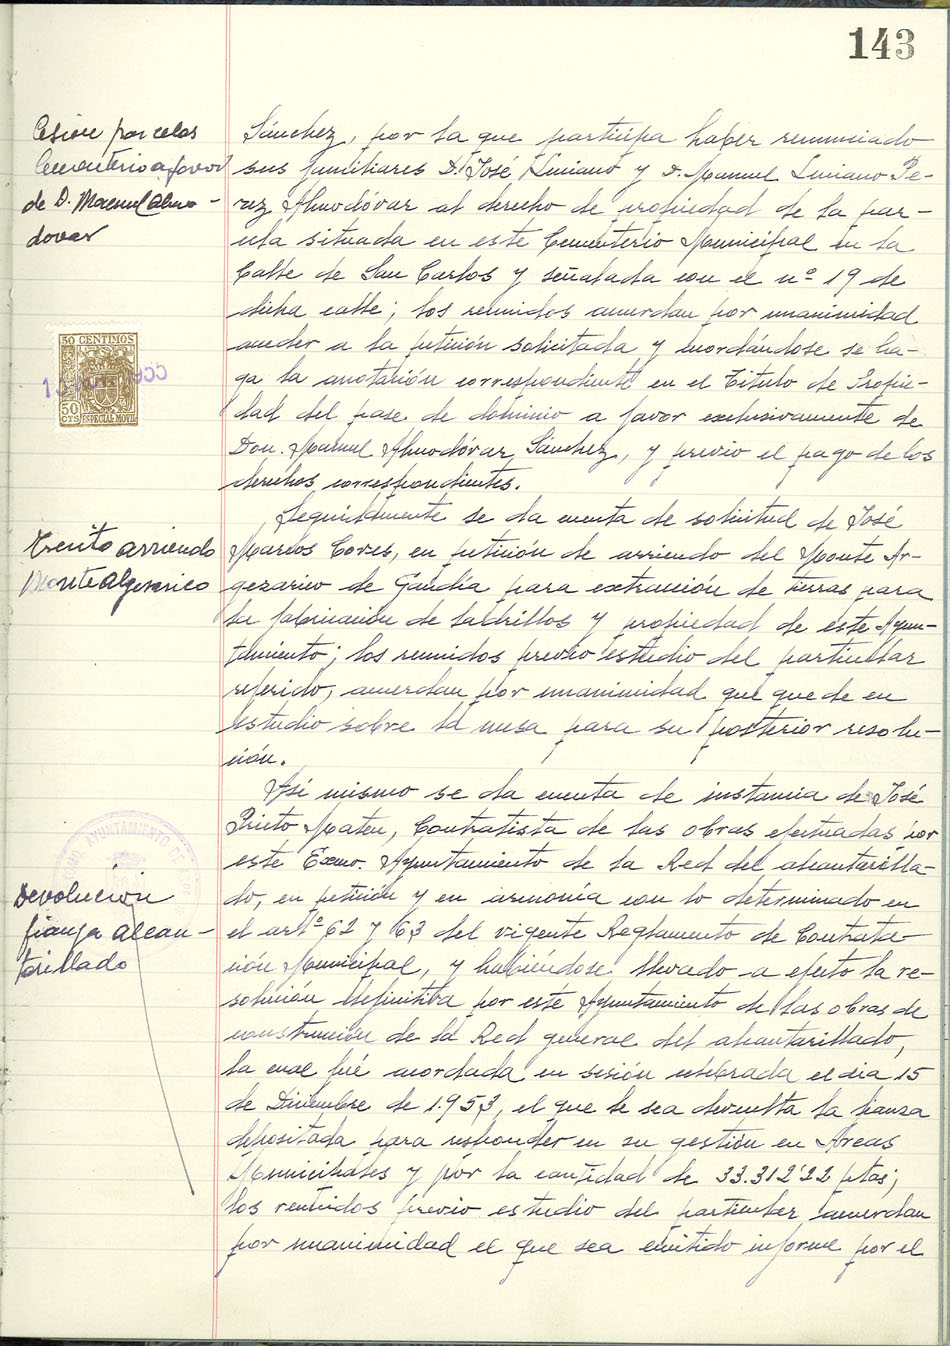 143
Cesion parcelas
Cementerio a favor
de D. Manuel Almo-
dovar
50 CENTIMOS
50
CTS ESPECIAL MOVIL
Sánchez, por la que participa haber renunciado
sus familiares D. José Liniano y D. Manuel Liniano Pe-
rez Almodóvar al derecho de propiedad de la par-
cela situada en este Cementerio Municipal en la
Calle de San Carlos y señalada con el nº 19 de
dicha calle; los reunidos acuerdan por unanimidad
acceder a la petición solicitada y acordándose se ha-
ga la anotación correspondiente en el Titulo de Propie-
dad del pase de dominio a favor exclusivamente de
Don Manuel Almodóvar Sánchez, y previo el pago de los
derechos correspondientes.
Escrito arriendo
Monte Algezarico
Seguidamente se da cuenta de solicitud de José
Marcos Cores, en petición de arriendo del Monte Ar-
gezarico de Gandía para extracción de tierras para
la fabricación de ladrillos y propiedad de este Ayun-
tamiento; los reunidos previo estudio del particular
referido, acuerdan por unanimidad que quede en
estudio sobre la mesa para su posterior resolu-
ción.
AYUNTAMIENTO DE
Devolucion
fianza alcan-
tarillado
Asi mismo se da cuenta de instancia de José
Prieto Mateu, Contratista de las obras efectuadas por
este Excmo. Ayuntamiento de la Red del alcantarilla-
do, en petición y en armonía con lo determinado en
el artº 62 y 63 del vigente Reglamento de Contrata-
ción Municipal, y habiéndose llevado a efecto la re-
solución definitiva por este Ayuntamiento de las obras de
construcción de la Red general del alcantarillado,
la cual fué acordada en sesión celebrada el dia 15
de Diciembre de 1.953, el que le sea devuelta la fianza
depositada para responder en su gestión en Arcas
Municipales y por la cantidad de 33.312'22 ptas;
los reunidos previo estudio del particular acuerdan
por unanimidad el que sea emitido informe por el